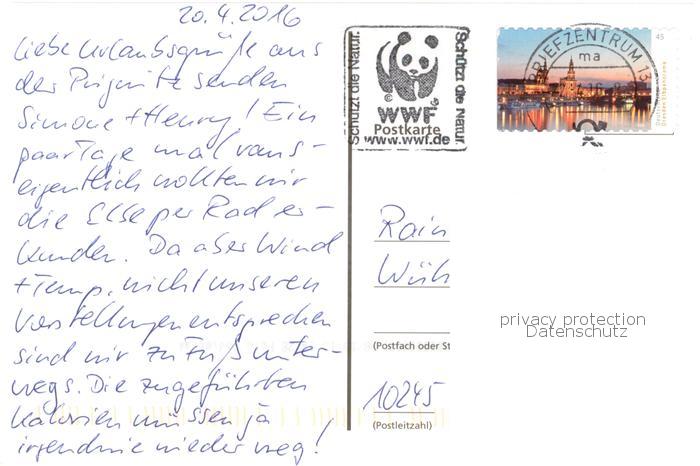 20.4.2016
Liebe Urlaubsgrüße aus
der Prignitz senden
Simone + Henry! Ein
paar Tage mal raus -
eigentlich wollten wir
die Elbe per Rad er-
kunden. Da aber Wind
+ Temp. nicht unseren
Vorstellungen entsprechen
sind wir zu Fuß unter-
wegs. Die zugeführten
Kalorien müssen ja
irgendwie wieder weg!
Schützt die Natur.
WWF
Schützt die Natur.
Postkarte
www.wwf.de
BRIEFZENTRUM 13
ma
45
Rain
Wüh
(Postfach oder St
10245
(Postleitzahl)
privacy protection
Datenschutz